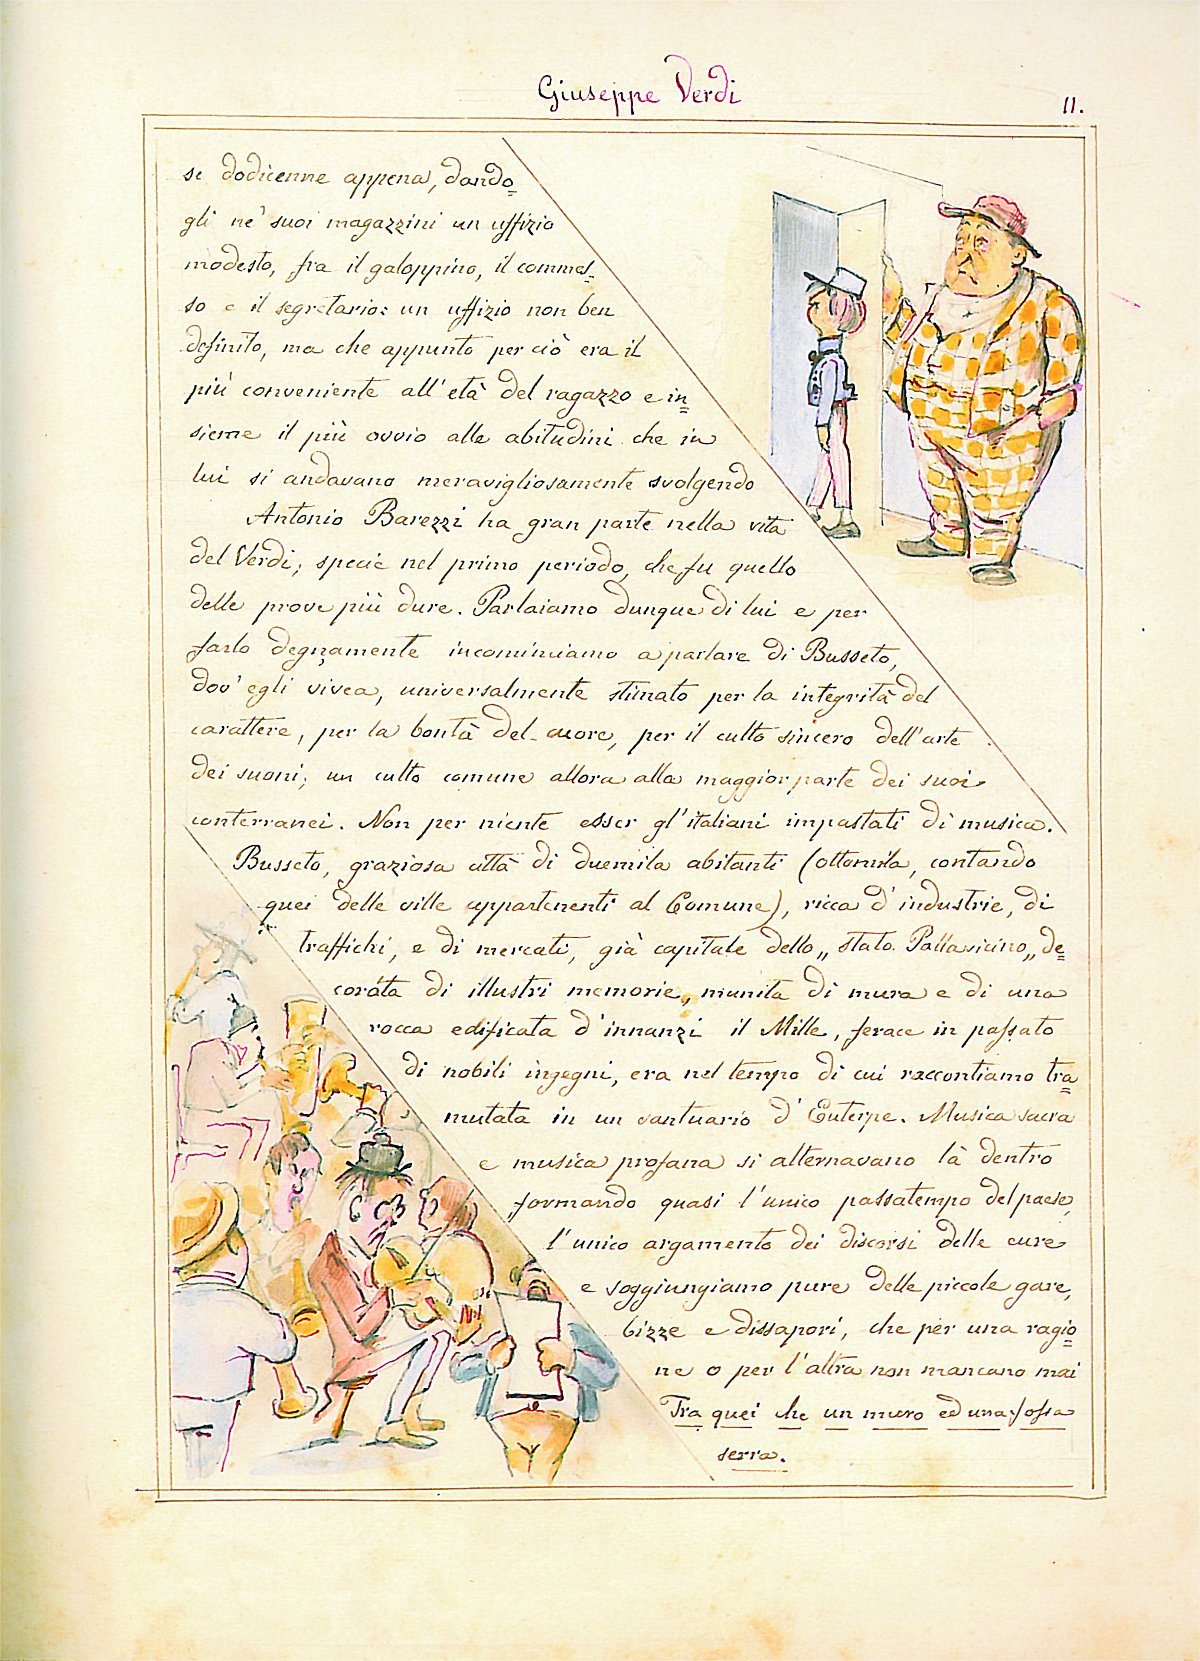 Giuseppe Verdi
11.
se dodicenne appena, dando=
gli ne' suoi magazzini un uffizio
modesto, fra il galoppino, il commes=
so e il segretario: un uffizio non ben
definito, ma che appunto per ciò era il
più conveniente all'età del ragazzo e in=
sieme il più ovvio alle abitudini che in
lui si andavano meravigliosamente svolgendo
Antonio Barezzi ha gran parte nella vita
del Verdi; specie nel primo periodo, che fu quello
delle prove più dure. Parlaiamo dunque di lui e per
farlo degnamente incominciamo a parlare di Busseto,
dov'egli vivea, universalmente stimato per la integrità del
carattere, per la bontà del cuore, per il culto sincero dell'arte
dei suoni; un culto comune allora alla maggior parte dei suoi
conterranei. Non per niente esser gl'italiani impastati di musica.
Busseto, graziosa città di duemila abitanti (ottomila, contando
quei delle ville appartenenti al Comune), ricca d'industrie, di
traffichi, e di mercati, già capitale dello „ stato Pallavicino „ de=
corata di illustri memorie, munita di mura e di una
rocca edificata d'innanzi il Mille, ferace in passato
di nobili ingegni, era nel tempo di cui raccontiamo tra=
mutata in un santuario d'Euterpe. Musica sacra
e musica profana si alternavano là dentro
formando quasi l'unico passatempo del paese,
l'unico argomento dei discorsi delle cure
e soggiungiamo pure delle piccole gare,
bizze e dissapori, che per una ragio=
ne o per l'altra non mancano mai
Tra quei che un muro ed una fossa
serra.